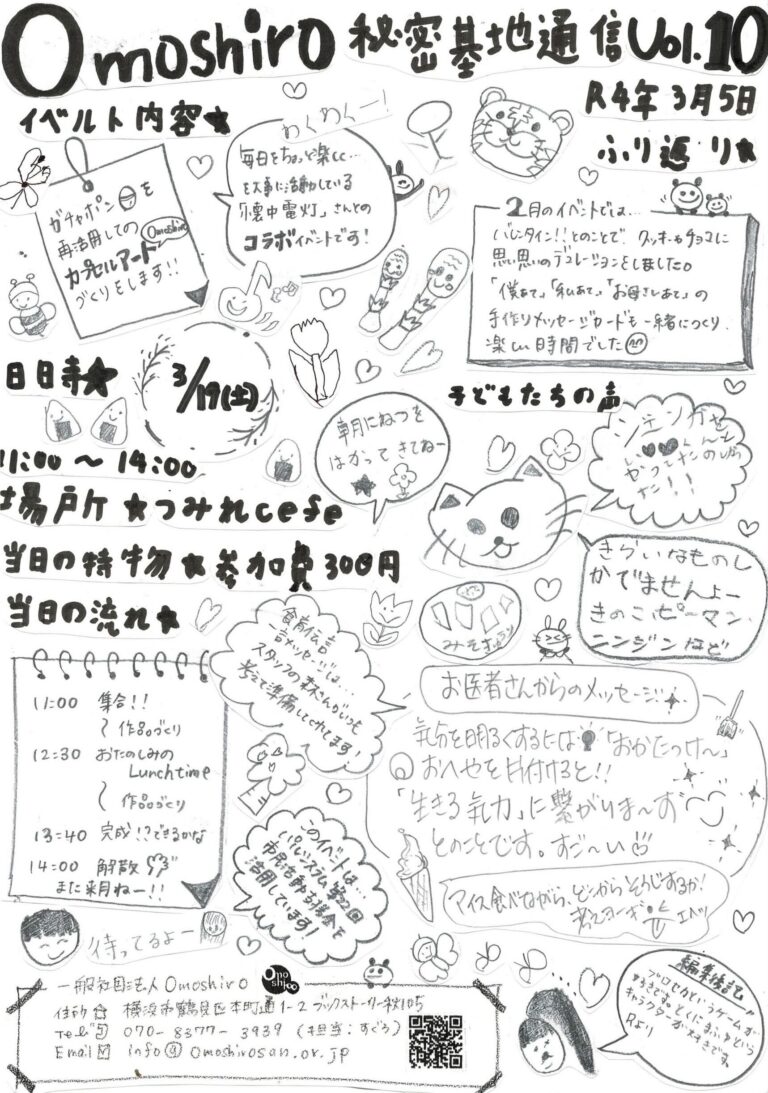 Omoshiro 秘密基地通信 Vol.10
R4年3月5日
イベルト内容★
ガチャポンを
再活用しての Omoshiro
カプセルアート
づくりをします!!
わくわくー!
毎日をちょっと楽しく…
を大事に活動している
「懐中電灯」さんとの
コラボイベントです!
ふり返り★
2月のイベントでは…
バレンタイン!!とのことで、クッキーやチョコに
思い思いのデコレーションをしました。
「僕あて」「私あて」「お母さんあて」の
手作りメッセージカードも一緒につくり、
楽しい時間でした
日時★
3/19(土)
11:00 〜 14:00
場所★つみれcefe
当日の特物★参加費300円
当日の流れ★
朝にねつを
はかってきてねー
子どもたちの声
きらいなものし
かでませんよー
きのこ、ピーマン、
ニンジンなど
11:00 集合!!
〜作品づくり
12:30 おたのしみの
Lunchtime
〜作品づくり
13:40 完成!?できるかな
14:00 解散
また来月ねー!!
待ってるよー
食育伝言
一言メッセージは…
スタッフの森さんがいつも
考えて準備してくれてます!
このイベントは…
パルシステム第22回
市民活動支援金を
活用しています!
お医者さんからのメッセージ
気分を明るくするには「おかたづけ〜」
おへやを片付けると!!
「生きる気力」に繋がりま〜す
とのことです。すご〜い
アイス食べながら、どこからそうじするか!
考えヨーギ
編集後記
プロセカというゲームが
すきです。とくにまふゆという
キャラクターが大すきです。
Rより
一般社団法人 Omoshiro Omoshiroo
住所 横浜市鶴見区本町通1-2 ブックストーリー秋105
Tel 070-8377-3939 (担当:すぐろ)
Email info@omoshirosan.or.jp